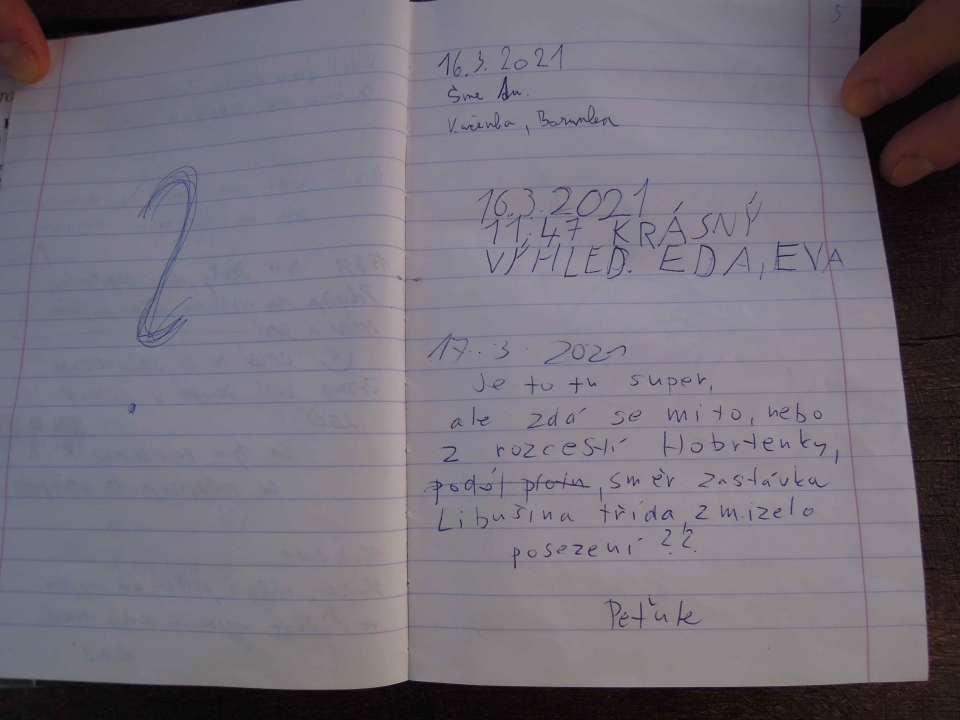 2
5
16.3.2021
Sme tu.
Kačenka, Barunka
16.3.2021
11:47 KRÁSNÝ
VÝHLED. EDA, EVA
17.3 2021
Je to tu super,
ale zdá se mi to, nebo
z rozcestí Hobrtenky,
podél plotu, směr zastávka
Libušina třída, zmizelo
posezení ??
Peťulk